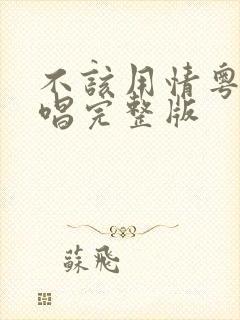 不該用情粵
唱完整版
蘇飛